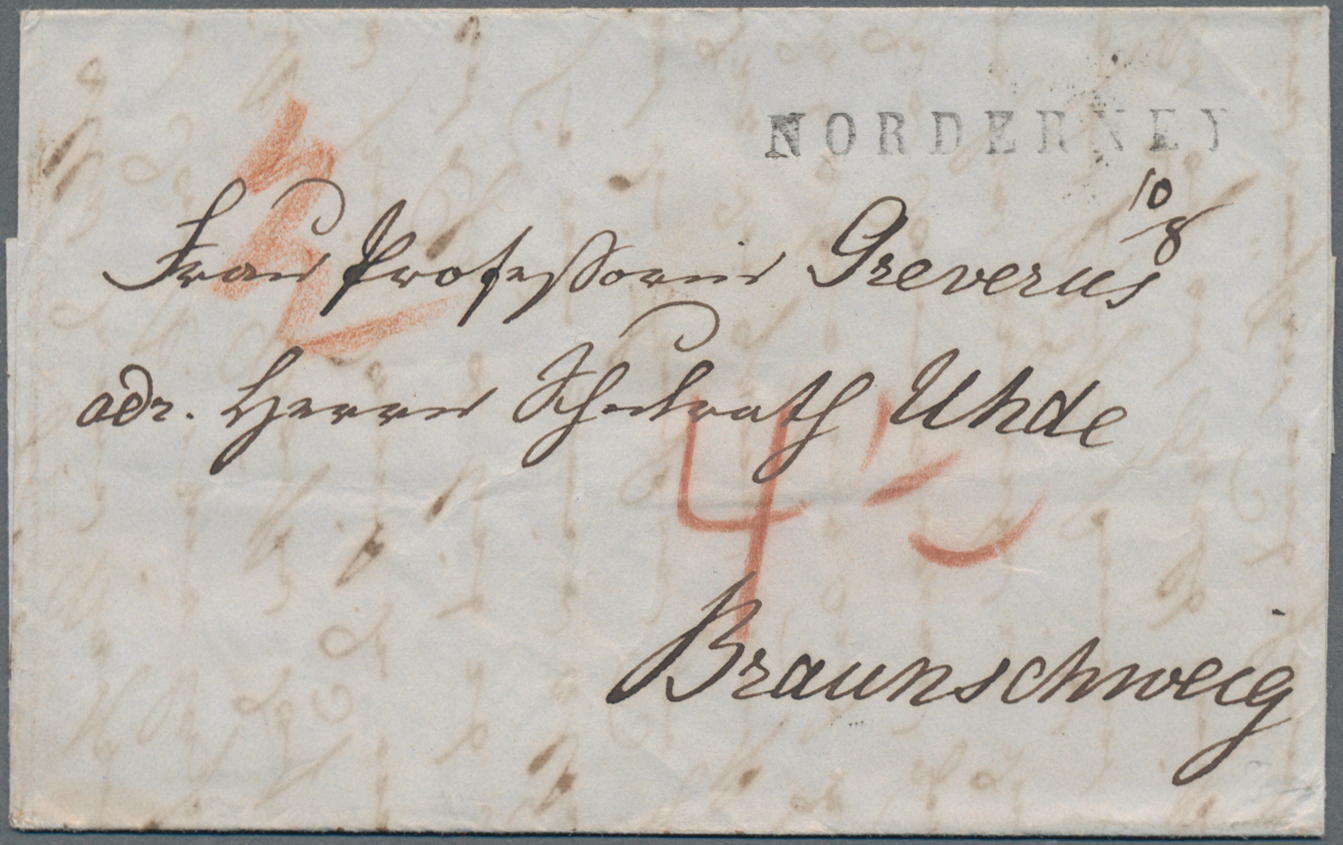 NORDERNEY
10/8
Frau Professorin Greverus
adr. Herrn Schulrath Uhde
4
Braunschweig